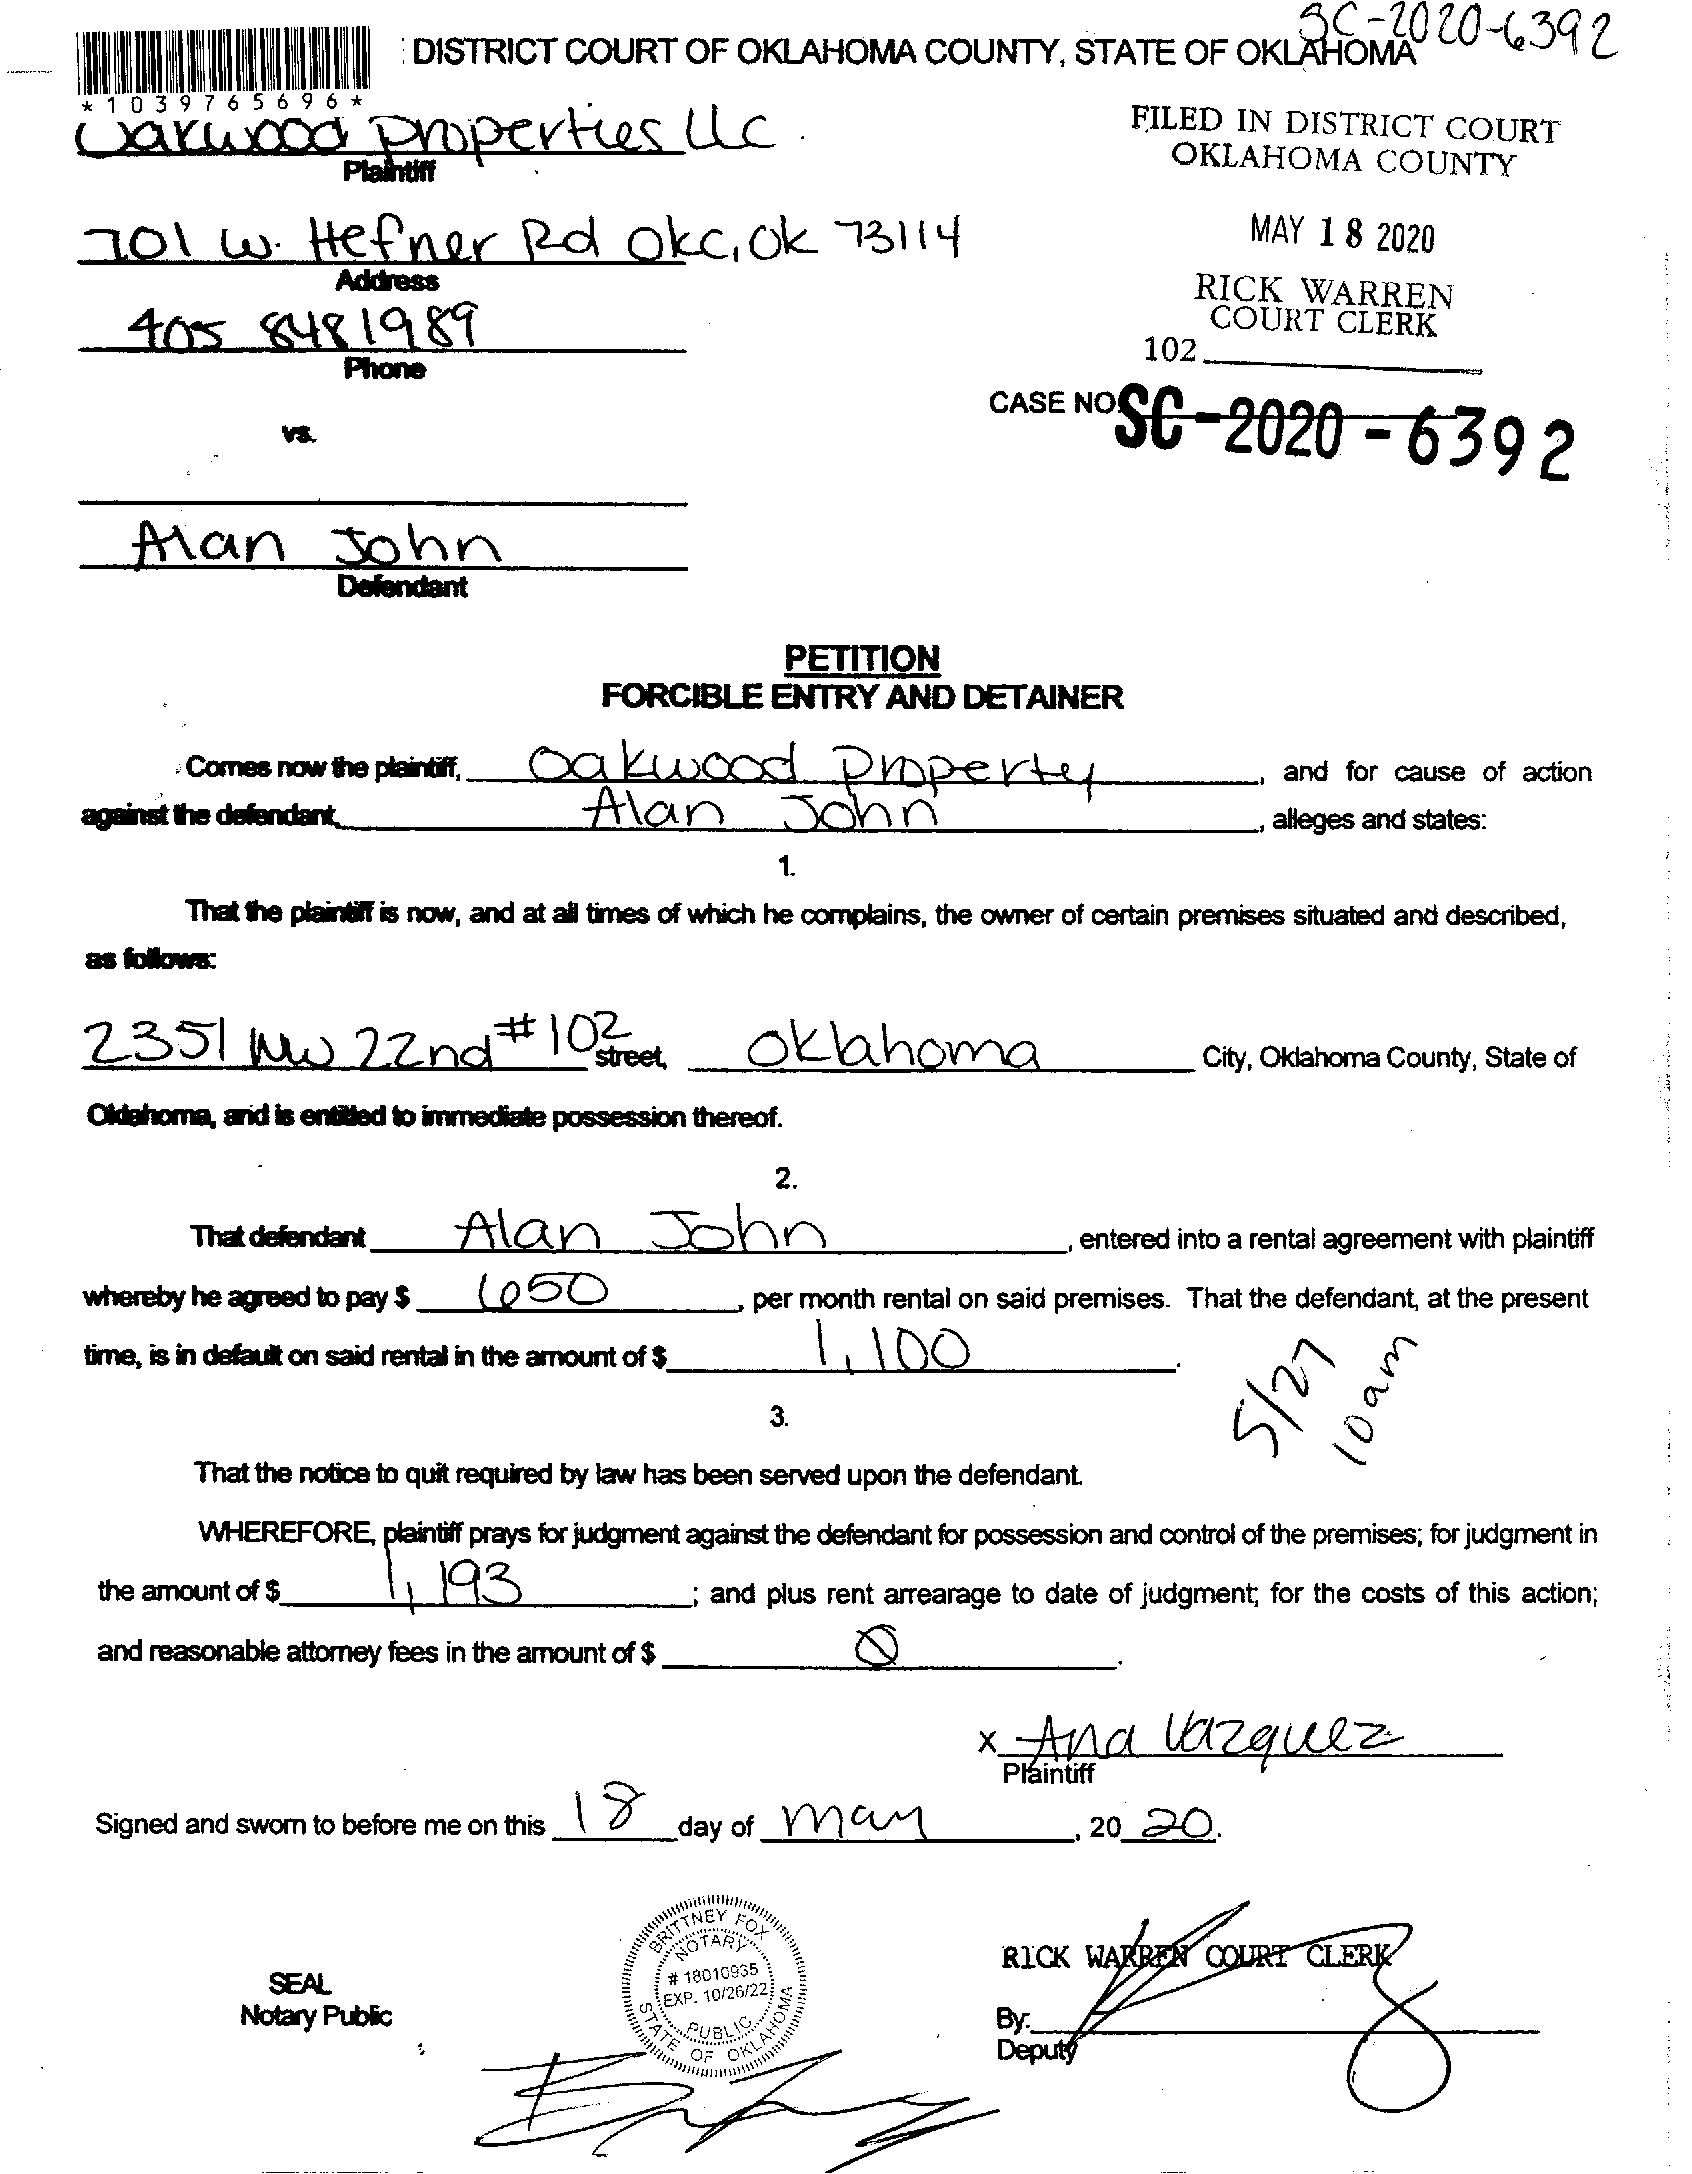 SC-2020-6392
DISTRICT COURT OF OKLAHOMA COUNTY, STATE OF OKLAHOMA
*1039765696*
Oakwood Properties LLC
Plaintiff
FILED IN DISTRICT COURT
OKLAHOMA COUNTY
701 W. Hefner Rd OKC, OK 73114
Address
MAY 18 2020
405 848 1989
Phone
RICK WARREN
COURT CLERK
102
CASE NO. SC-2020-6392
vs.
Alan John
Defendant
PETITION
FORCIBLE ENTRY AND DETAINER
Comes now the plaintiff, Oakwood Property, and for cause of action
against the defendant, Alan John, alleges and states:
1.
That the plaintiff is now, and at all times of which he complains, the owner of certain premises situated and described,
as follows:
2351 NW 22nd #102 street, Oklahoma City, Oklahoma County, State of
Oklahoma, and is entitled to immediate possession thereof.
2.
That defendant Alan John, entered into a rental agreement with plaintiff
whereby he agreed to pay $ 650, per month rental on said premises. That the defendant, at the present
time, is in default on said rental in the amount of $ 1,100.
5/27
10am
3.
That the notice to quit required by law has been served upon the defendant.
WHEREFORE, plaintiff prays for judgment against the defendant for possession and control of the premises; for judgment in
the amount of $ 1,193; and plus rent arrearage to date of judgment; for the costs of this action;
and reasonable attorney fees in the amount of $ 0.
x Ana Vazquez
Plaintiff
Signed and sworn to before me on this 18 day of May, 2020.
BRITTNEY FOX
NOTARY
# 18010935
EXP. 10/26/22
PUBLIC
STATE OF OKLAHOMA
SEAL
Notary Public
RICK WARREN COURT CLERK
By:
Deputy